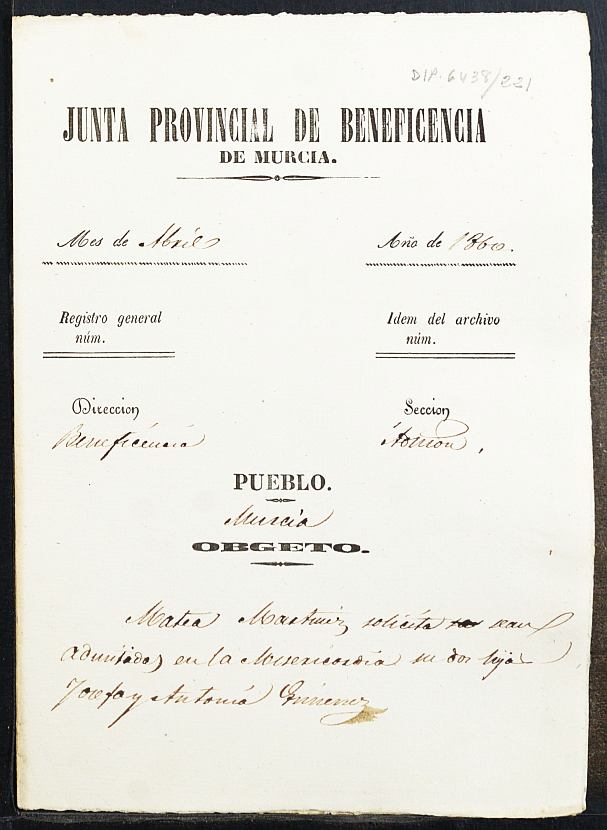 DIP. 6438/221
JUNTA PROVINCIAL DE BENEFICENCIA
DE MURCIA.
Mes de Abril
Año de 1860.
Registro general
núm.
Idem del archivo
núm.
Direccion
Beneficencia
Seccion
PUEBLO.
Murcia
OBGETO.
Matea Martinez solicita sean
admitidas en la Misericordia sus dos hijas
Josefa y Antonia Gimenez